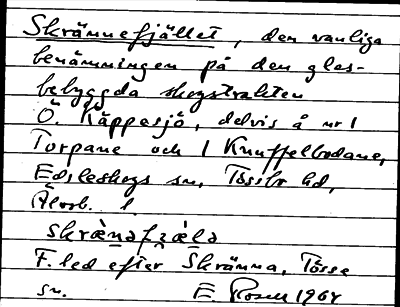 Skrännefjället, den vanliga
benämningen på den gles-
bebyggda skogstrakten
Ö. Käppesjö, delvis å nr 1
Torpane och 1 Knuffelbodane,
Edsleskogs sn, Tössbo hd,
Älvsb. l.
skrænafjæla
F. led efter Skränna, Tösse
sn. E. Rosell 1964